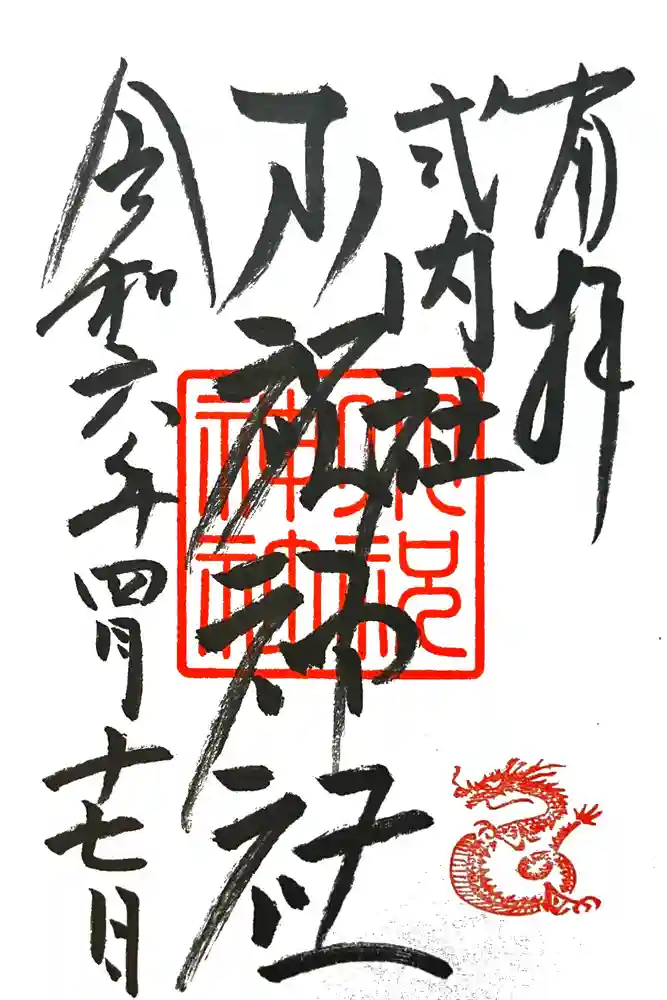 奉拝
式内社
小祝神社
令和六年四月十七日
小祝
神社